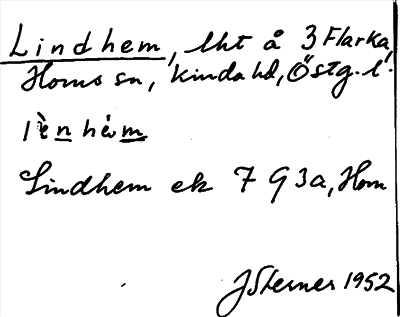 Lindhem, lht å 3 Flarka,
Horns sn, Kinda hd, Östg. l.
lènhèm
Lindhem ek 7 G 3a, Horn
J Sterner 1952